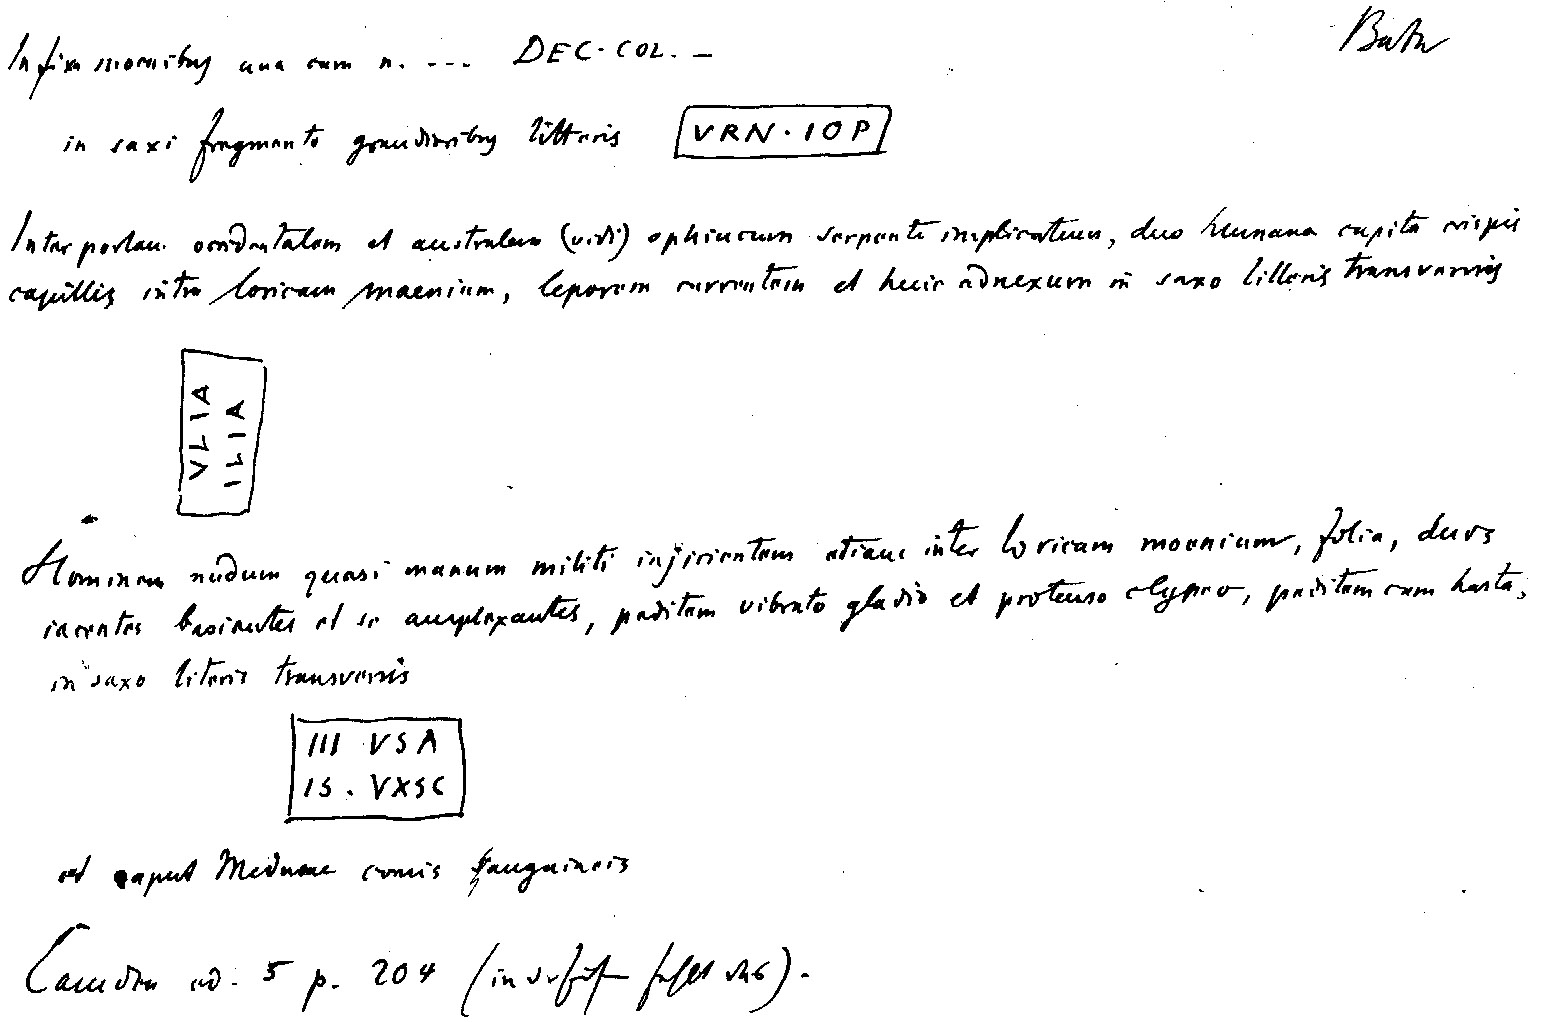 Bath
Infixa moenibus una cum n. --- DEC·COL. –
in saxi fragmento grandioribus litteris VRN·IOP
Inter portam occidentalem et australem (vidi) ophiucum serpente implicatum, duo humana capita crispis
capillis intra loricam moenium, leporem currentem et huic adnexum in saxo litteris transversis
VLIA
ILIA
Hominem nudum quasi manum militi injicientem etiam inter loricam moenium, folia, duos
iacentes basiantes et se amplexantes, peditem vibrato gladio et protenso clypeo, peditem cum hasta,
in saxo literis transversis
III VSA
IS. VXSC
et caput Medusae comis sanguineis
Camden ed. 5 p. 204 (in der